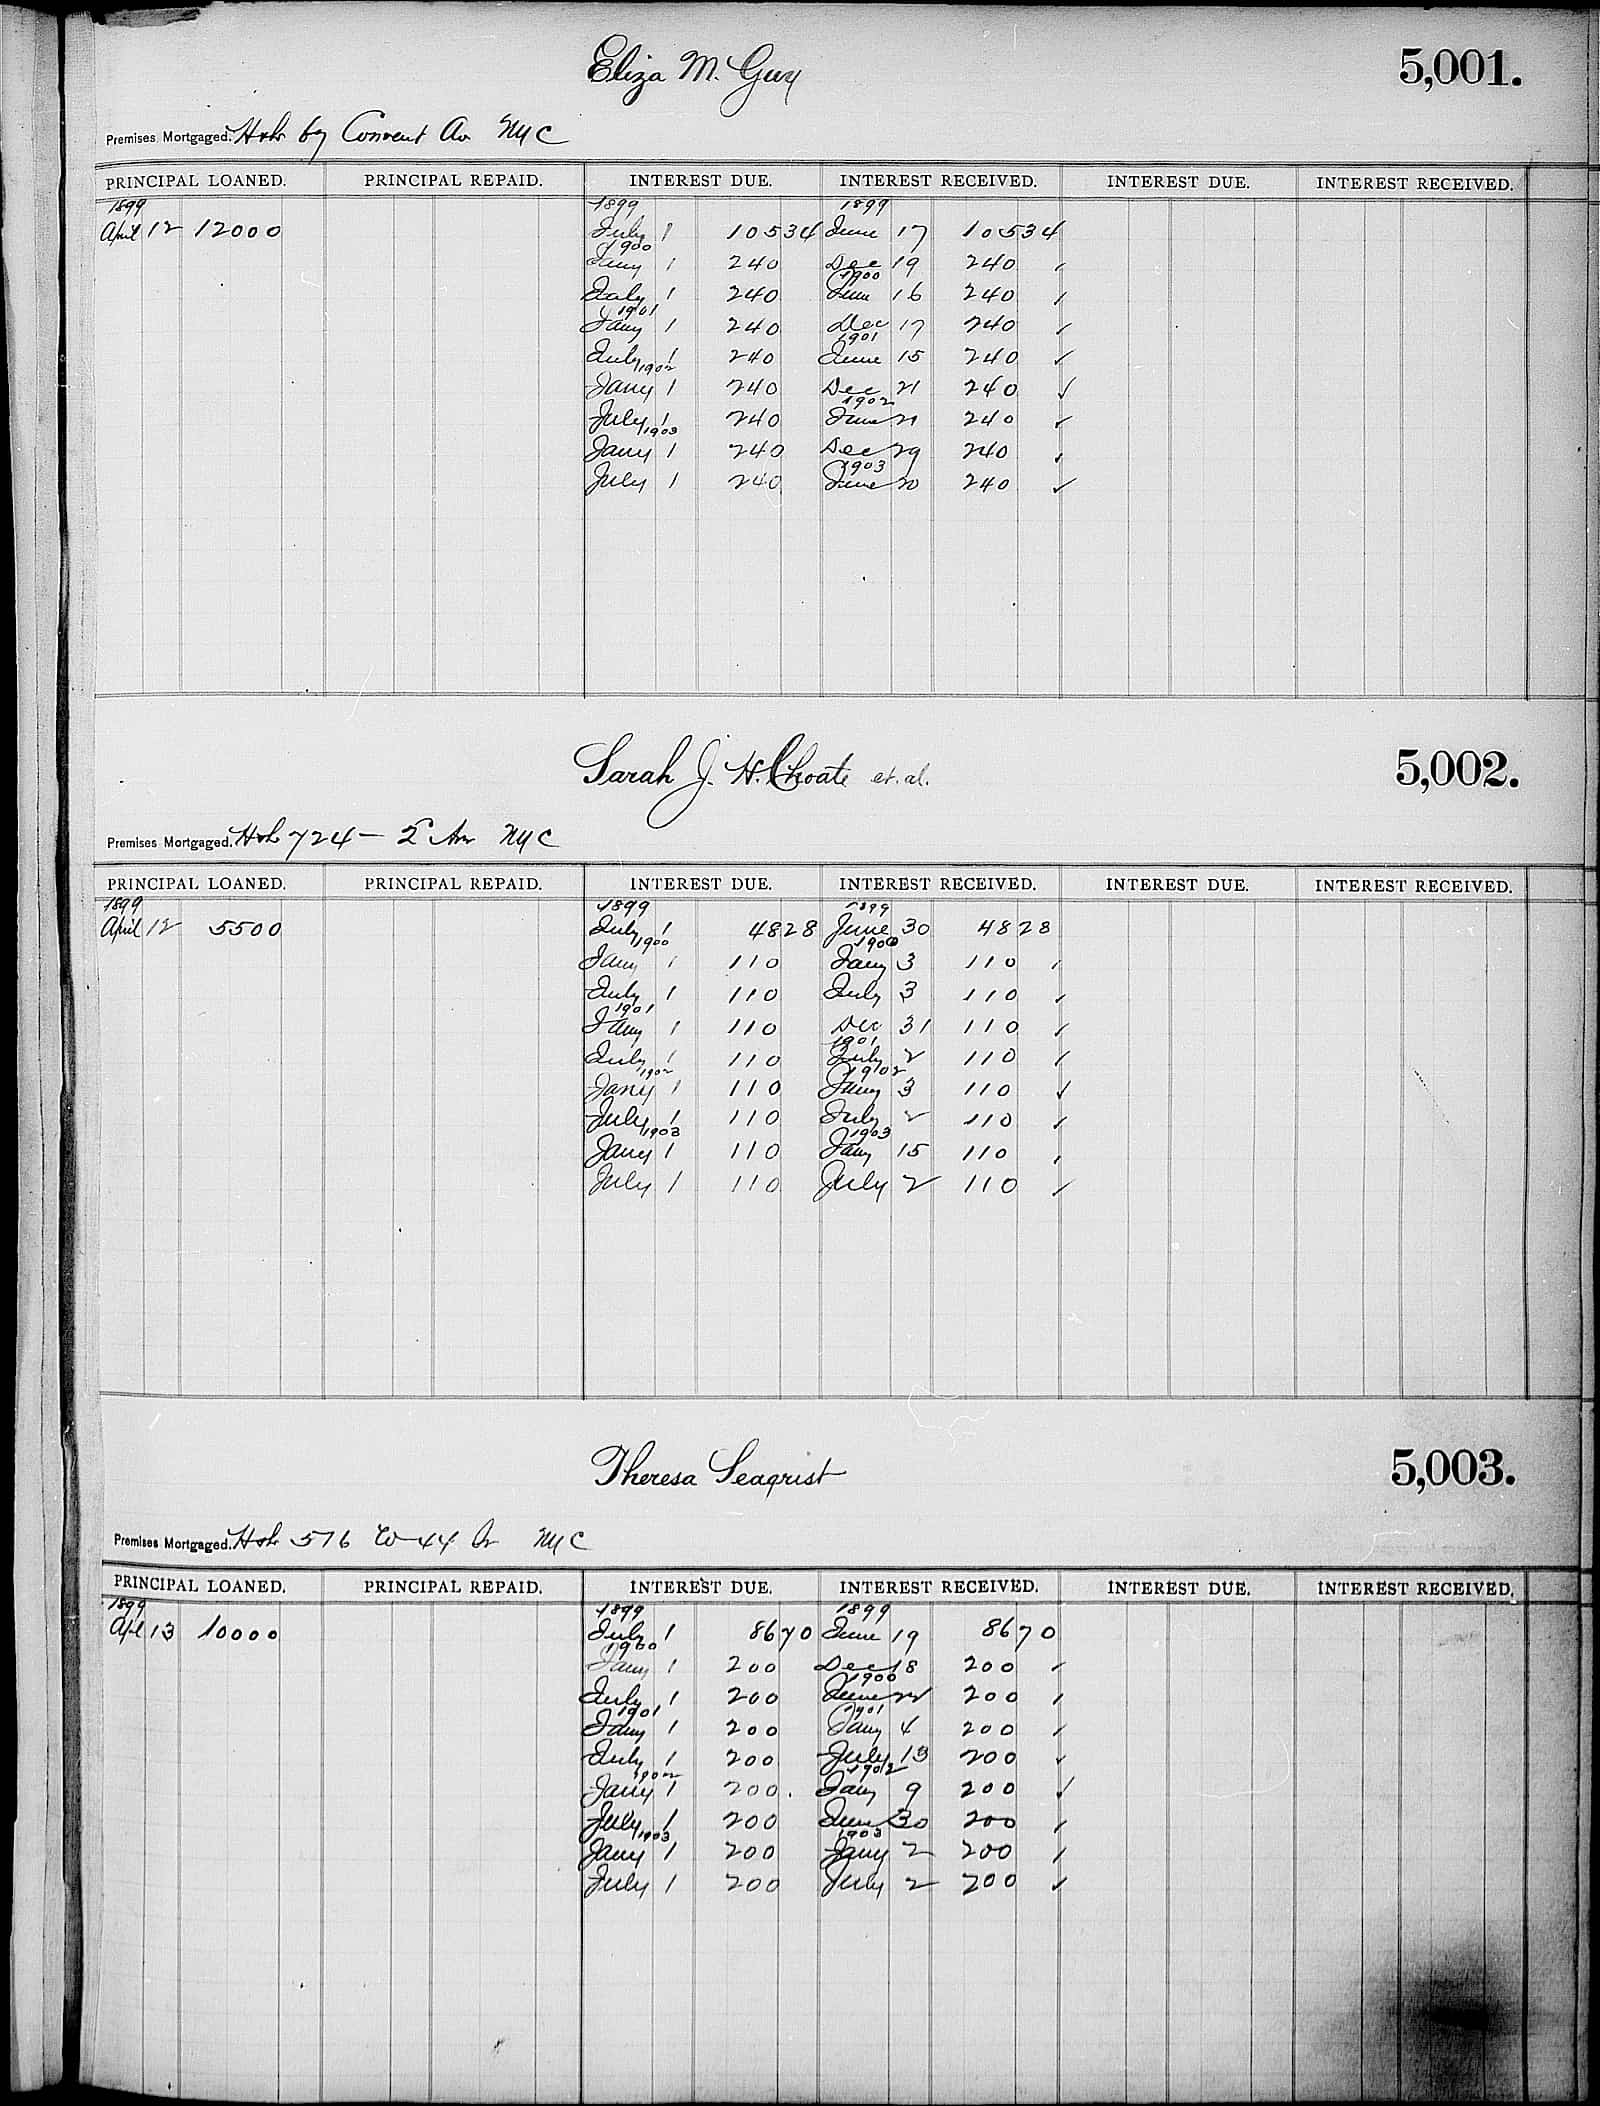 Eliza M. Guy 5,001.
Premises Mortgaged. H&L 67 Convent Av NYC
PRINCIPAL LOANED. PRINCIPAL REPAID. INTEREST DUE. INTEREST RECEIVED. INTEREST DUE. INTEREST RECEIVED.
1899 1899 1899
April 12 12000 July 1 105 34 June 17 105 34
1900
Jany 1 240 Dec 19 240 ✓
1900
July 1 240 June 16 240 ✓
1901
Jany 1 240 Dec 17 240 ✓
1901
July 1 240 June 15 240 ✓
1902
Jany 1 240 Dec 21 240 ✓
1902
July 1 240 June 21 240 ✓
1903
Jany 1 240 Dec 29 240 ✓
1903
July 1 240 June 20 240 ✓
Sarah J. H. Choate et. al. 5,002.
Premises Mortgaged. H&L 724 – 5 Av NYC
PRINCIPAL LOANED. PRINCIPAL REPAID. INTEREST DUE. INTEREST RECEIVED. INTEREST DUE. INTEREST RECEIVED.
1899 1899 1899
April 12 5500 July 1 48 28 June 30 48 28
1900 1900
Jany 1 110 Jany 3 110 ✓
July 1 110 July 3 110 ✓
1901
Jany 1 110 Dec 31 110 ✓
1901
July 1 110 July 2 110 ✓
1902 1902
Jany 1 110 Jany 3 110 ✓
July 1 110 July 2 110 ✓
1903 1903
Jany 1 110 Jany 15 110 ✓
July 1 110 July 2 110 ✓
Theresa Seagrist 5,003.
Premises Mortgaged. H&L 576 W 44 NYC
PRINCIPAL LOANED. PRINCIPAL REPAID. INTEREST DUE. INTEREST RECEIVED. INTEREST DUE. INTEREST RECEIVED.
1899 1899 1899
Apl 13 10000 July 1 86 70 June 19 86 70
1900
Jany 1 200 Dec 18 200 ✓
1900
July 1 200 June 22 200 ✓
1901 1901
Jany 1 200 Jany 4 200 ✓
July 1 200 July 13 200 ✓
1902 1902
Jany 1 200. Jany 9 200 ✓
July 1 200 June 30 200 ✓
1903 1903
Jany 1 200 Jany 2 200 ✓
July 1 200 July 2 200 ✓